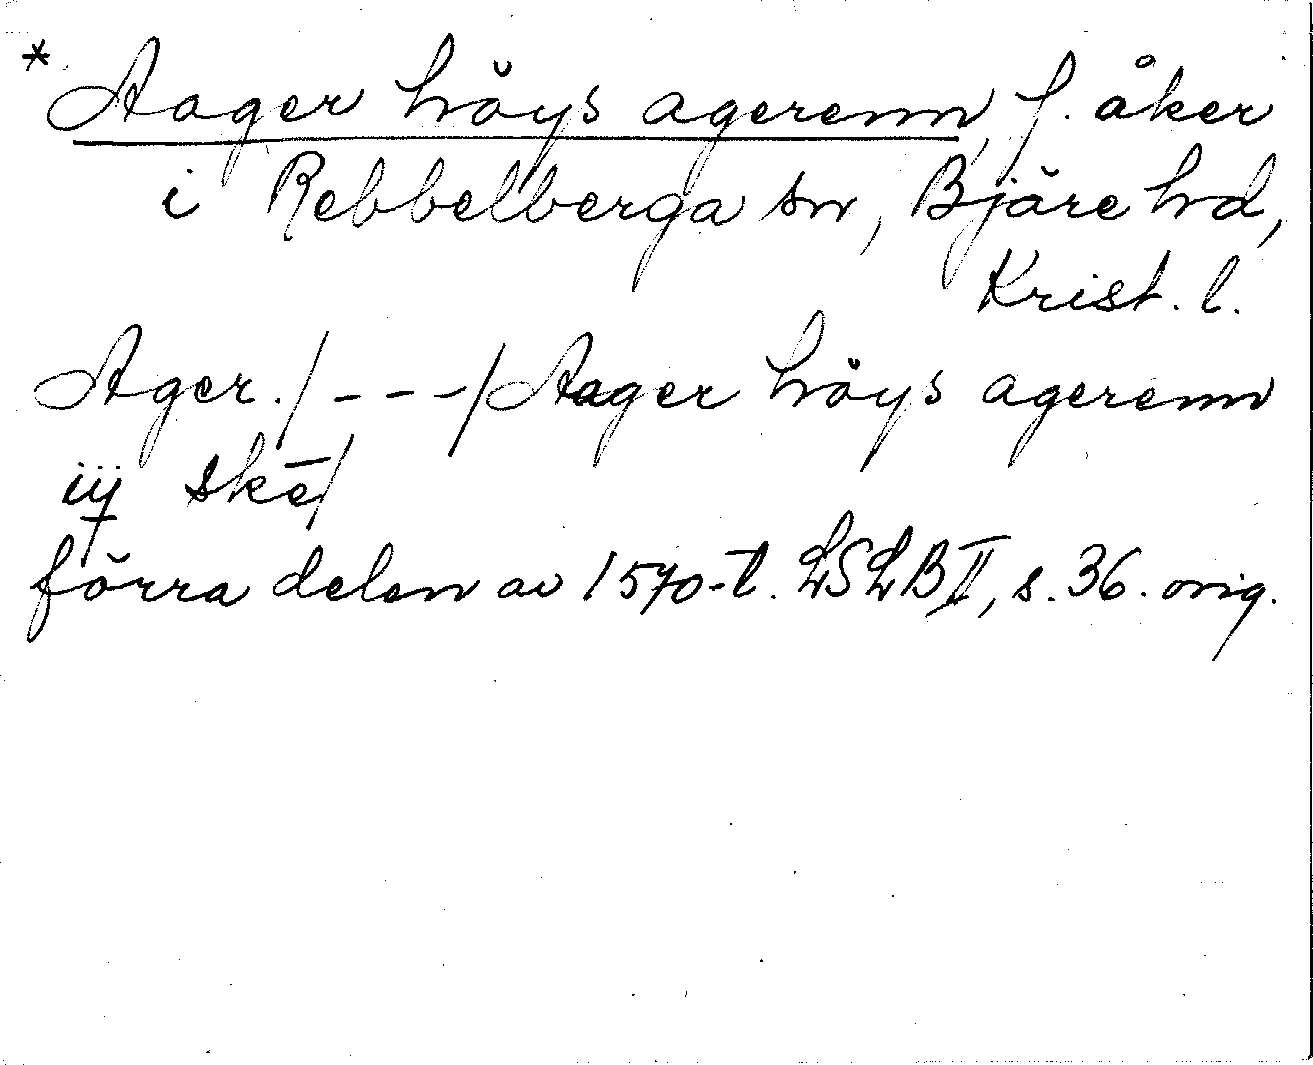 * Aager höys agerenn, f. åker
i Rebbelberga sn, Bjäre hd,
Krist. l.
Ager. /---/ Aager höys agerenn
iij skē/
förra delen av 1570-t. LSLB II, s. 36. orig.